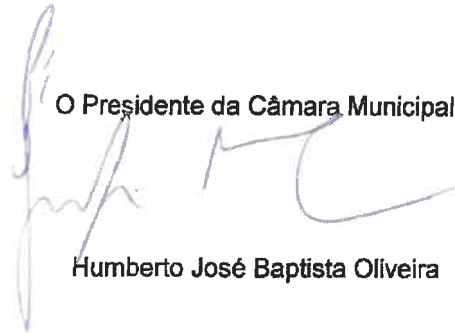 O Presidente da Câmara Municipal
Humberto José Baptista Oliveira